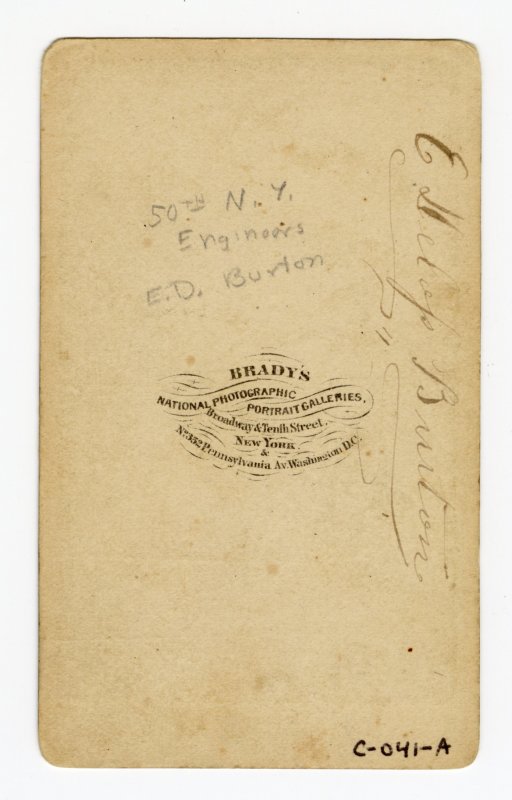 50TH N.Y.
Engineers
E.D. Burton
BRADY'S
NATIONAL PHOTOGRAPHIC
PORTRAIT GALLERIES,
Broadway & Tenth Street.
NEW YORK
&
No. 352 Pennsylvania Av. Washington D.C.
E Burton
C-041-A